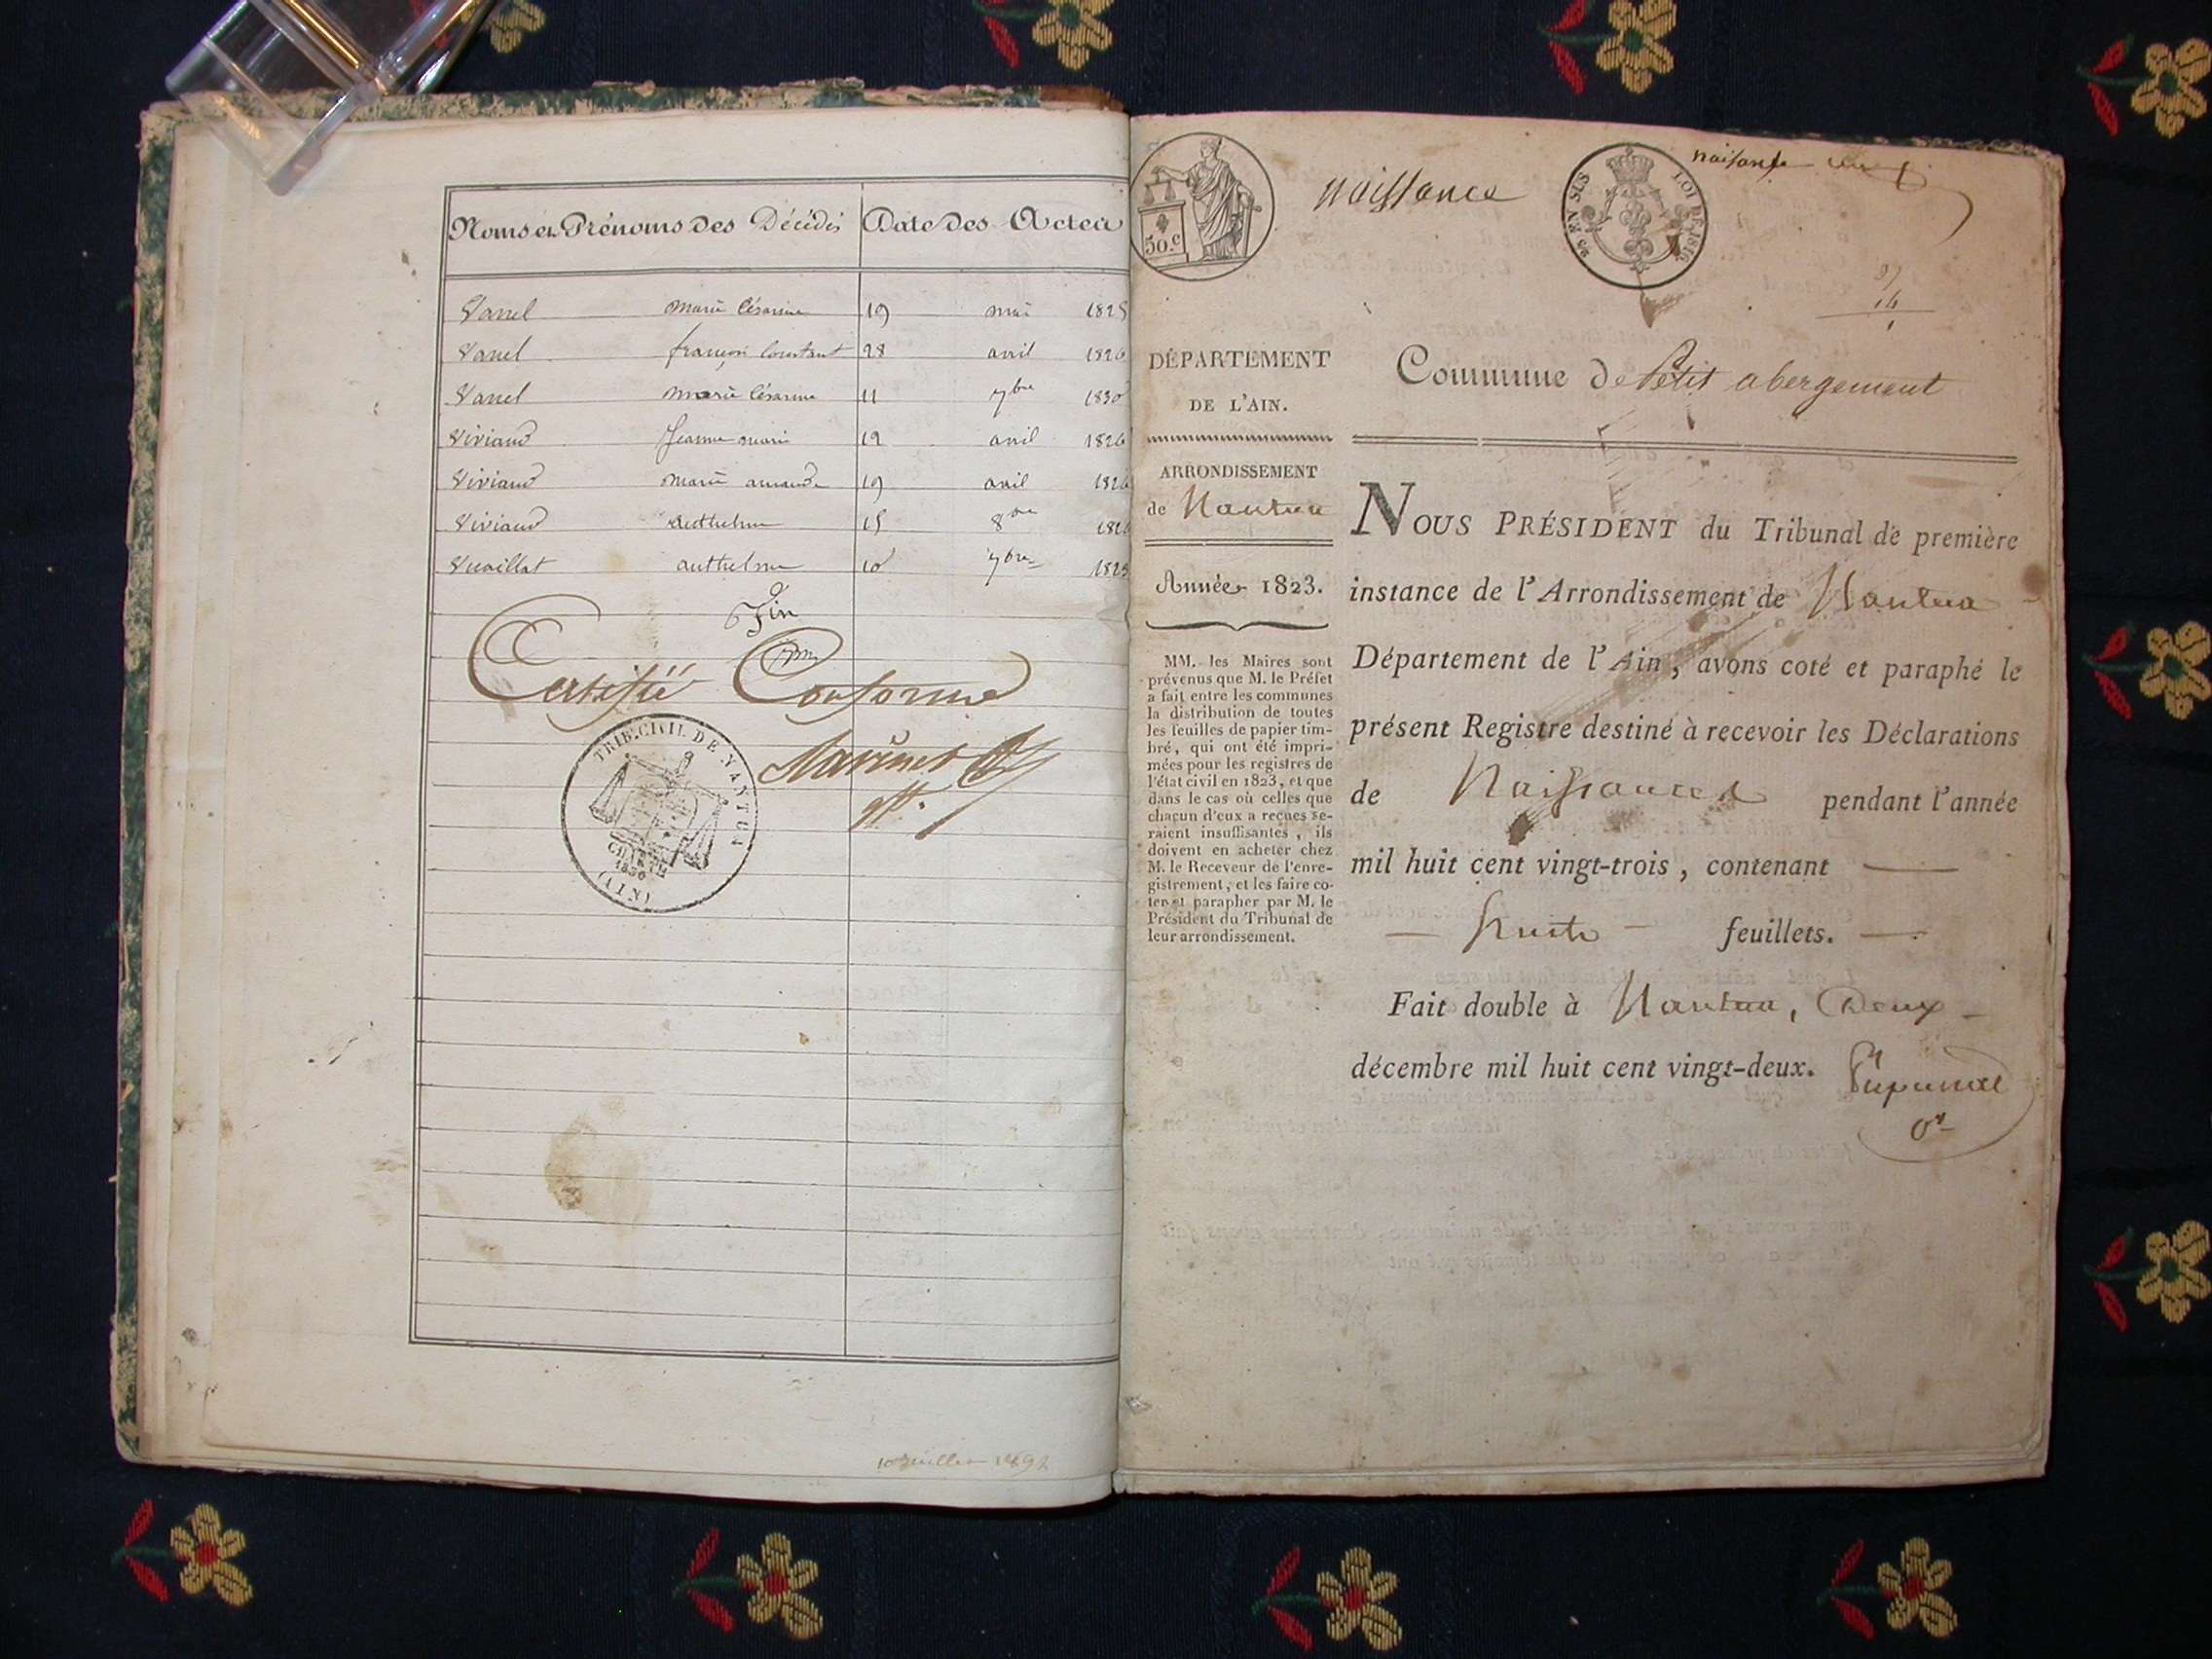 Noms et Prénoms des Décédés Date des Actes
Vanel marie Césarine 19 mai 182
Vanel françois Constant 28 avril 1826
Vanel marie Césarine 11 7bre 1830
Viviand Jeanne marie 12 avril 1826
Viviand marie 19 avril 182
Viviand anthelme 15 8bre 182
Vuaillat anthelme 10 7bre 182
Fin
Certifié Conforme
TRIB. CIVIL DE NANTUA
1830
(AIN)
10 juillet
50.c
naissance
25 EN SUS
LOI DE 1816
naissance
14
DÉPARTEMENT
DE L'AIN.
ARRONDISSEMENT
de Nantua
Année 1823.
MM. les Maires sont
prévenus que M. le Préfet
a fait entre les communes
la distribution de toutes
les feuilles de papier tim-
bré, qui ont été impri-
mées pour les registres de
l'état civil en 1823, et que
dans le cas où celles que
chacun d'eux a reçues se-
raient insuffisantes, ils
doivent en acheter chez
M. le Receveur de l'enre-
gistrement, et les faire co-
ter et parapher par M. le
Président du Tribunal de
leur arrondissement.
Commune de Petit abergement
NOUS PRÉSIDENT du Tribunal de première
instance de l'Arrondissement de Nantua
Département de l'Ain, avons coté et paraphé le
présent Registre destiné à recevoir les Déclarations
de Naissances pendant l'année
mil huit cent vingt-trois, contenant
huit feuillets.
Fait double à Nantua, Deux
décembre mil huit cent vingt-deux.